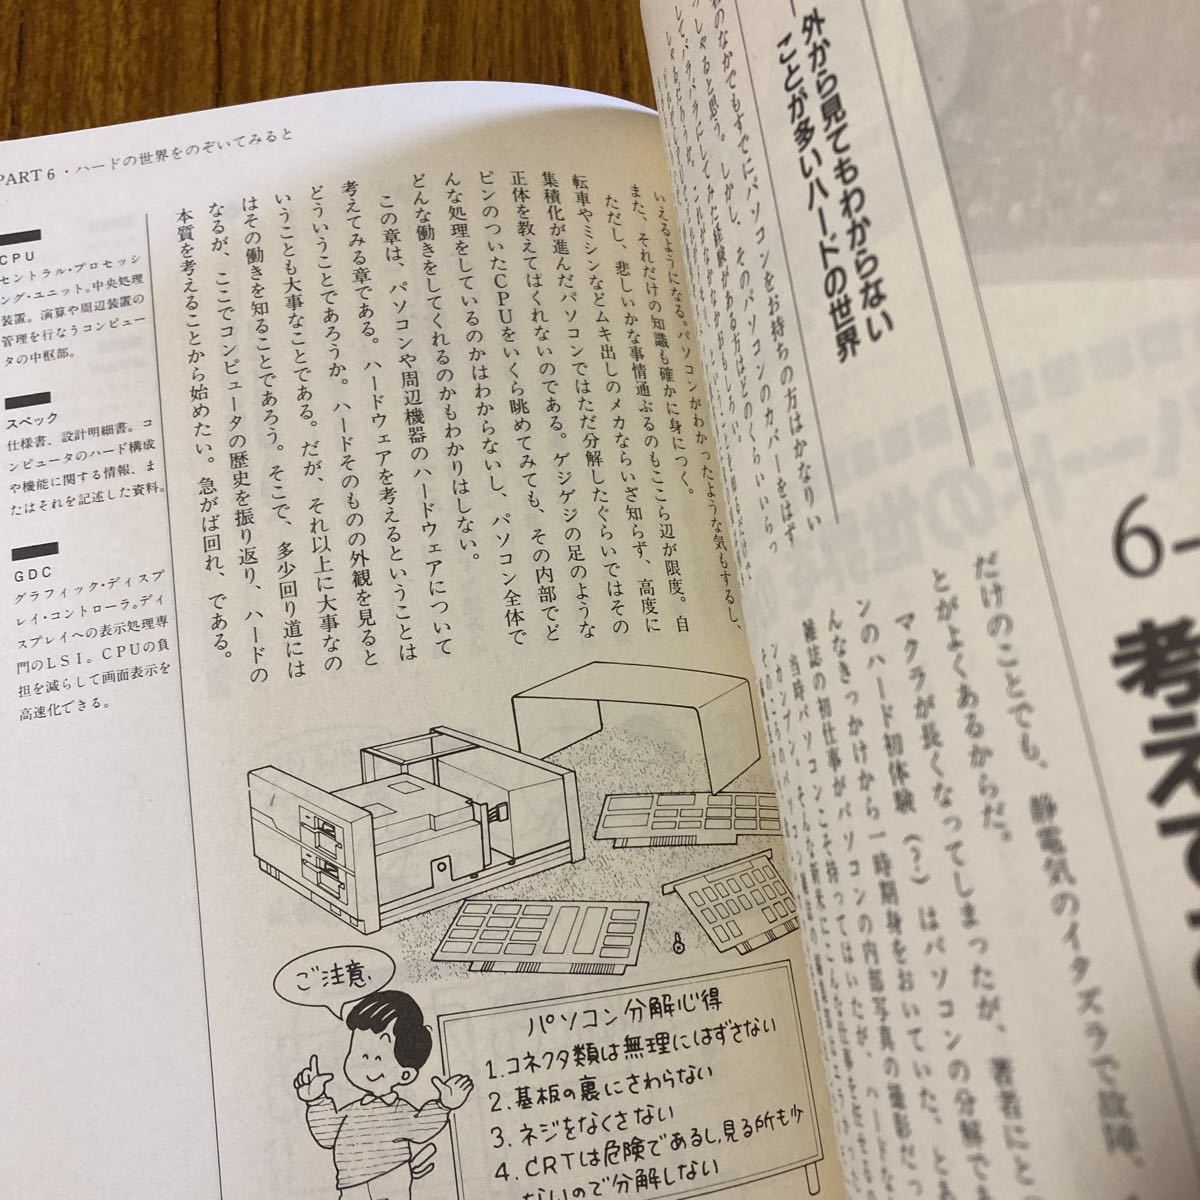 外から見てもわからない
ことが多いハードの世界
のなかでもすでにパソコンをお持ちの方はかなりい
しゃると思う。しかし、そのパソコンのカバーをはず
してバラバラにしてみた経験がある方はどのくらいいらっ
6-
考えて
だけのことでも、静電気のイタズラで故障、
とがよくあるからだ。
マクラが長くなってしまったが、著者にと
ンのハード初体験(?)はパソコンの分解で
んなきっかけから一時期身をおいていた、とあ
雑誌の初仕事がパソコンの内部写真の撮影だっ
PART6・ハードの世界をのぞいてみると
いえるようになる。パソコンがわかったような気もするし、
また、それだけの知識も確かに身につく。
ただし、悲しいかな事情通ぶるのもここら辺が限度。自
転車やミシンなどムキ出しのメカならいざ知らず、高度に
集積化が進んだパソコンではただ分解したぐらいではその
正体を教えてはくれないのである。ゲジゲジの足のような
ピンのついたCPUをいくら眺めてみても、その内部でど
んな処理をしているのかはわからないし、パソコン全体で
どんな働きをしてくれるのかもわかりはしない。
この章は、パソコンや周辺機器のハードウェアについて
考えてみる章である。ハードウェアを考えるということは
どういうことであろうか。ハードそのものの外観を見ると
いうことも大事なことである。だが、それ以上に大事なの
はその働きを知ることであろう。そこで、多少回り道には
なるが、ここでコンピュータの歴史を振り返り、ハードの
本質を考えることから始めたい。急がば回れ、である。
CPU
セントラル・プロセッシ
ング・ユニット。中央処理
装置。演算や周辺装置の
管理を行なうコンピュー
タの中枢部。
スペック
仕様書、設計明細書。コ
ンピュータのハード構成
や機能に関する情報、ま
たはそれを記述した資料。
GDC
グラフィック・ディスプ
レイ・コントローラ。ディ
スプレイへの表示処理専
門のLSI。CPUの負
担を減らして画面表示を
高速化できる。
ご注意、
パソコン分解心得
1.コネクタ類は無理にはずさない
2.基板の裏にさわらない
3.ネジをなくさない
4.CRTは危険であるし、見る所も少
ないので分解しない